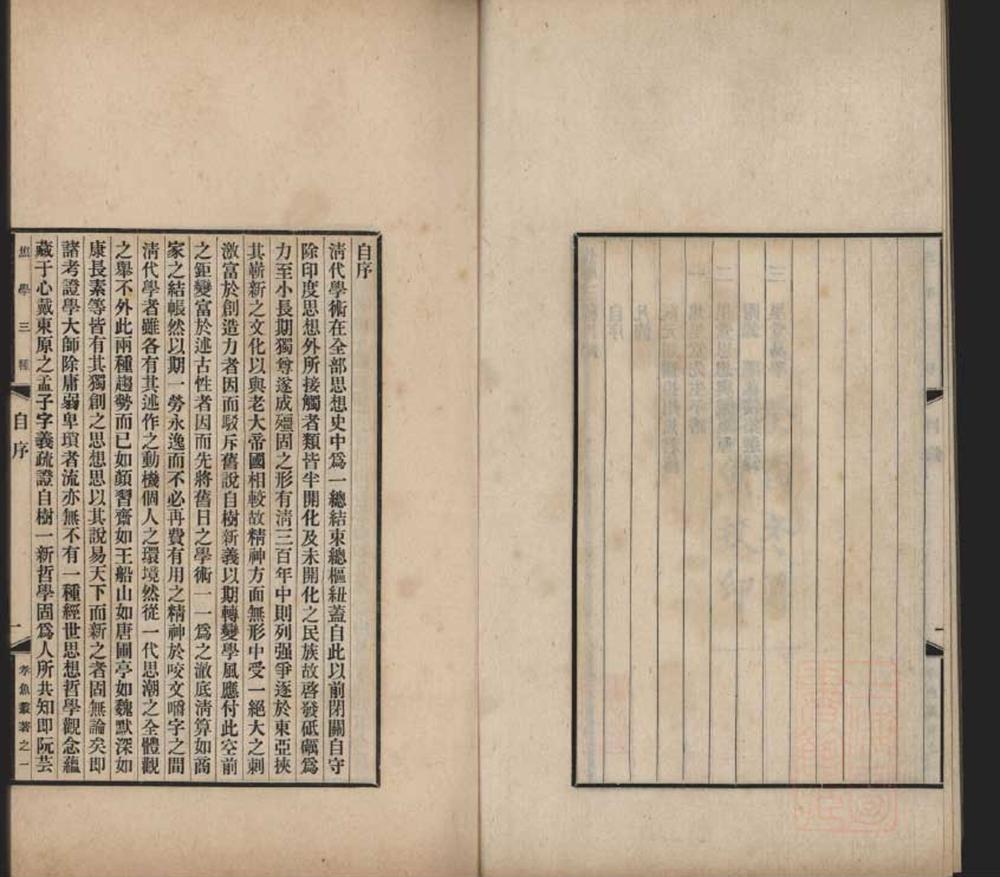 自序
清代學術在全部思想史中爲一總結束總樞紐蓋自此以前閉關自守
除印度思想外所接觸者類皆半開化及未開化之民族故啓發砥礪爲
力至小長期獨尊遂成殭固之形有清三百年中則列强爭逐於東亞挾
其嶄新之文化以與老大帝國相較故精神方面無形中受一絕大之刺
激富於創造力者因而駁斥舊說自樹新義以期轉變學風應付此空前
之鉅變富於述古性者因而先將舊日之學術一一爲之澈底清算如商
家之結帳然以期一勞永逸而不必再費有用之精神於咬文嚼字之間
清代學者雖各有其述作之動機個人之環境然從一代思潮之全體觀
之舉不外此兩種趨勢而已如顏習齋如王船山如唐圃亭如魏默深如
康長素等皆有其獨創之思想思以其說易天下而新之者固無論矣即
諸考證學大師除庸弱卑瑣者流亦無不有一種經世思想哲學觀念蘊
藏于心戴東原之孟子字義疏證自樹一新哲學固爲人所共知即阮芸
焦學三種
自序
一
孝魚叢著之一